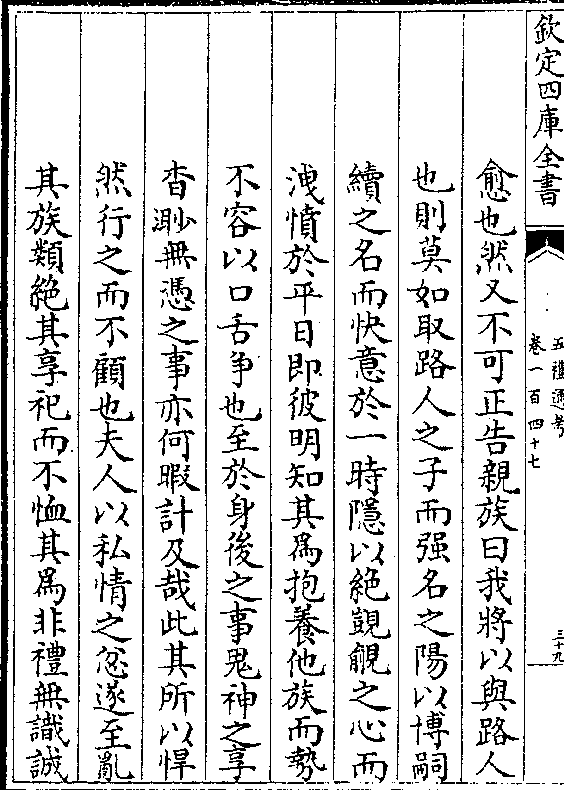 欽定四庫全書
五禮通考
卷一百四十七
三十九
愈也然又不可正告親族曰我將以與路人
也則莫如取路人之子而强名之陽以博嗣
續之名而快意於一時隱以絶覬覦之心而
洩憤於平日即彼明知其為抱養他族而勢
不容以口舌争也至於身後之事鬼神之享
杳渺無憑之事亦何暇計及哉此其所以悍
然行之而不顧也夫人以私情之忿遂至亂
其族類絶其享祀而不恤其為非禮無識誠